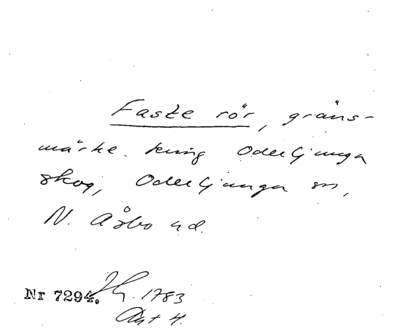 Faste rör, gräns-
märke. kring Oderljunga
skog, Oderljunga sn,
N. Åsbo hd.
Nr 7294. 1783
Akt 4.